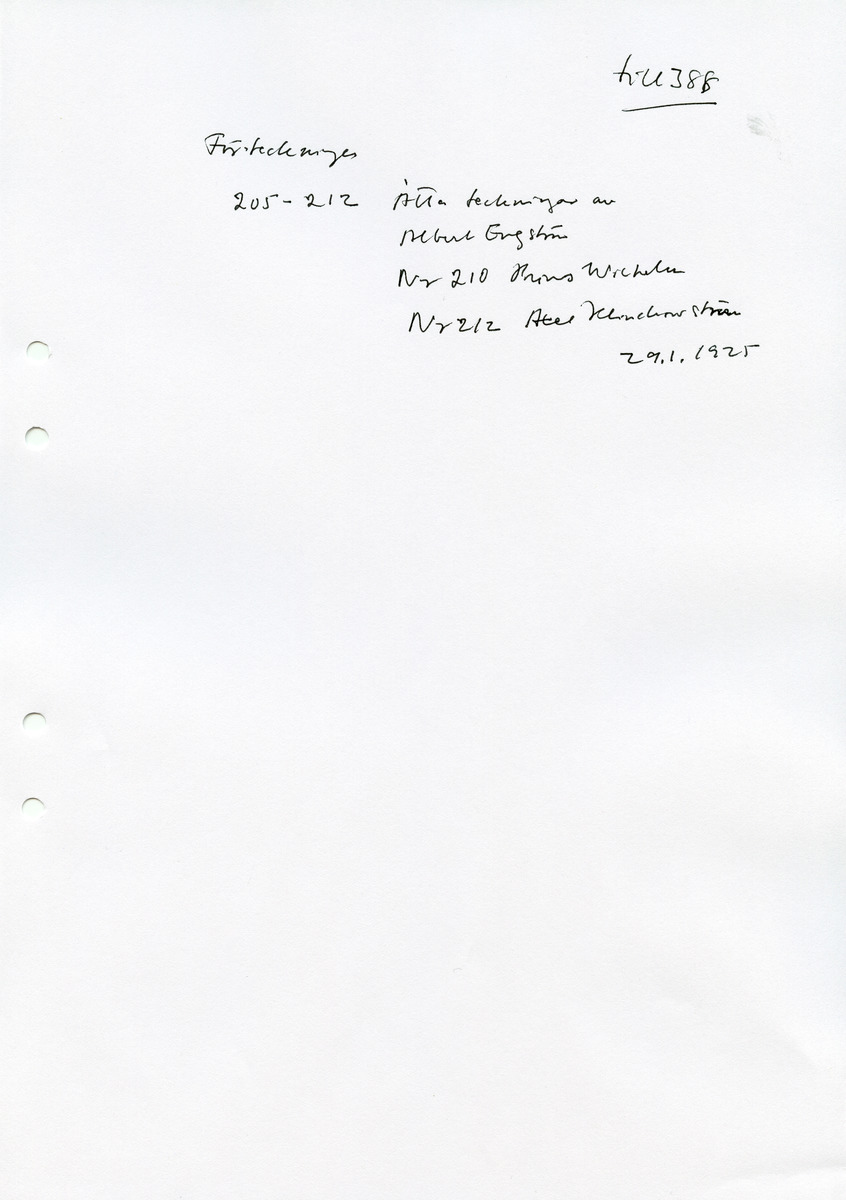 till 388
Förteckningen
205-212 Åtta teckningar av
Albert Engström
Nr 210 Prins Wilhelm
Nr 212 Axel Klinckowström
29.1.1925